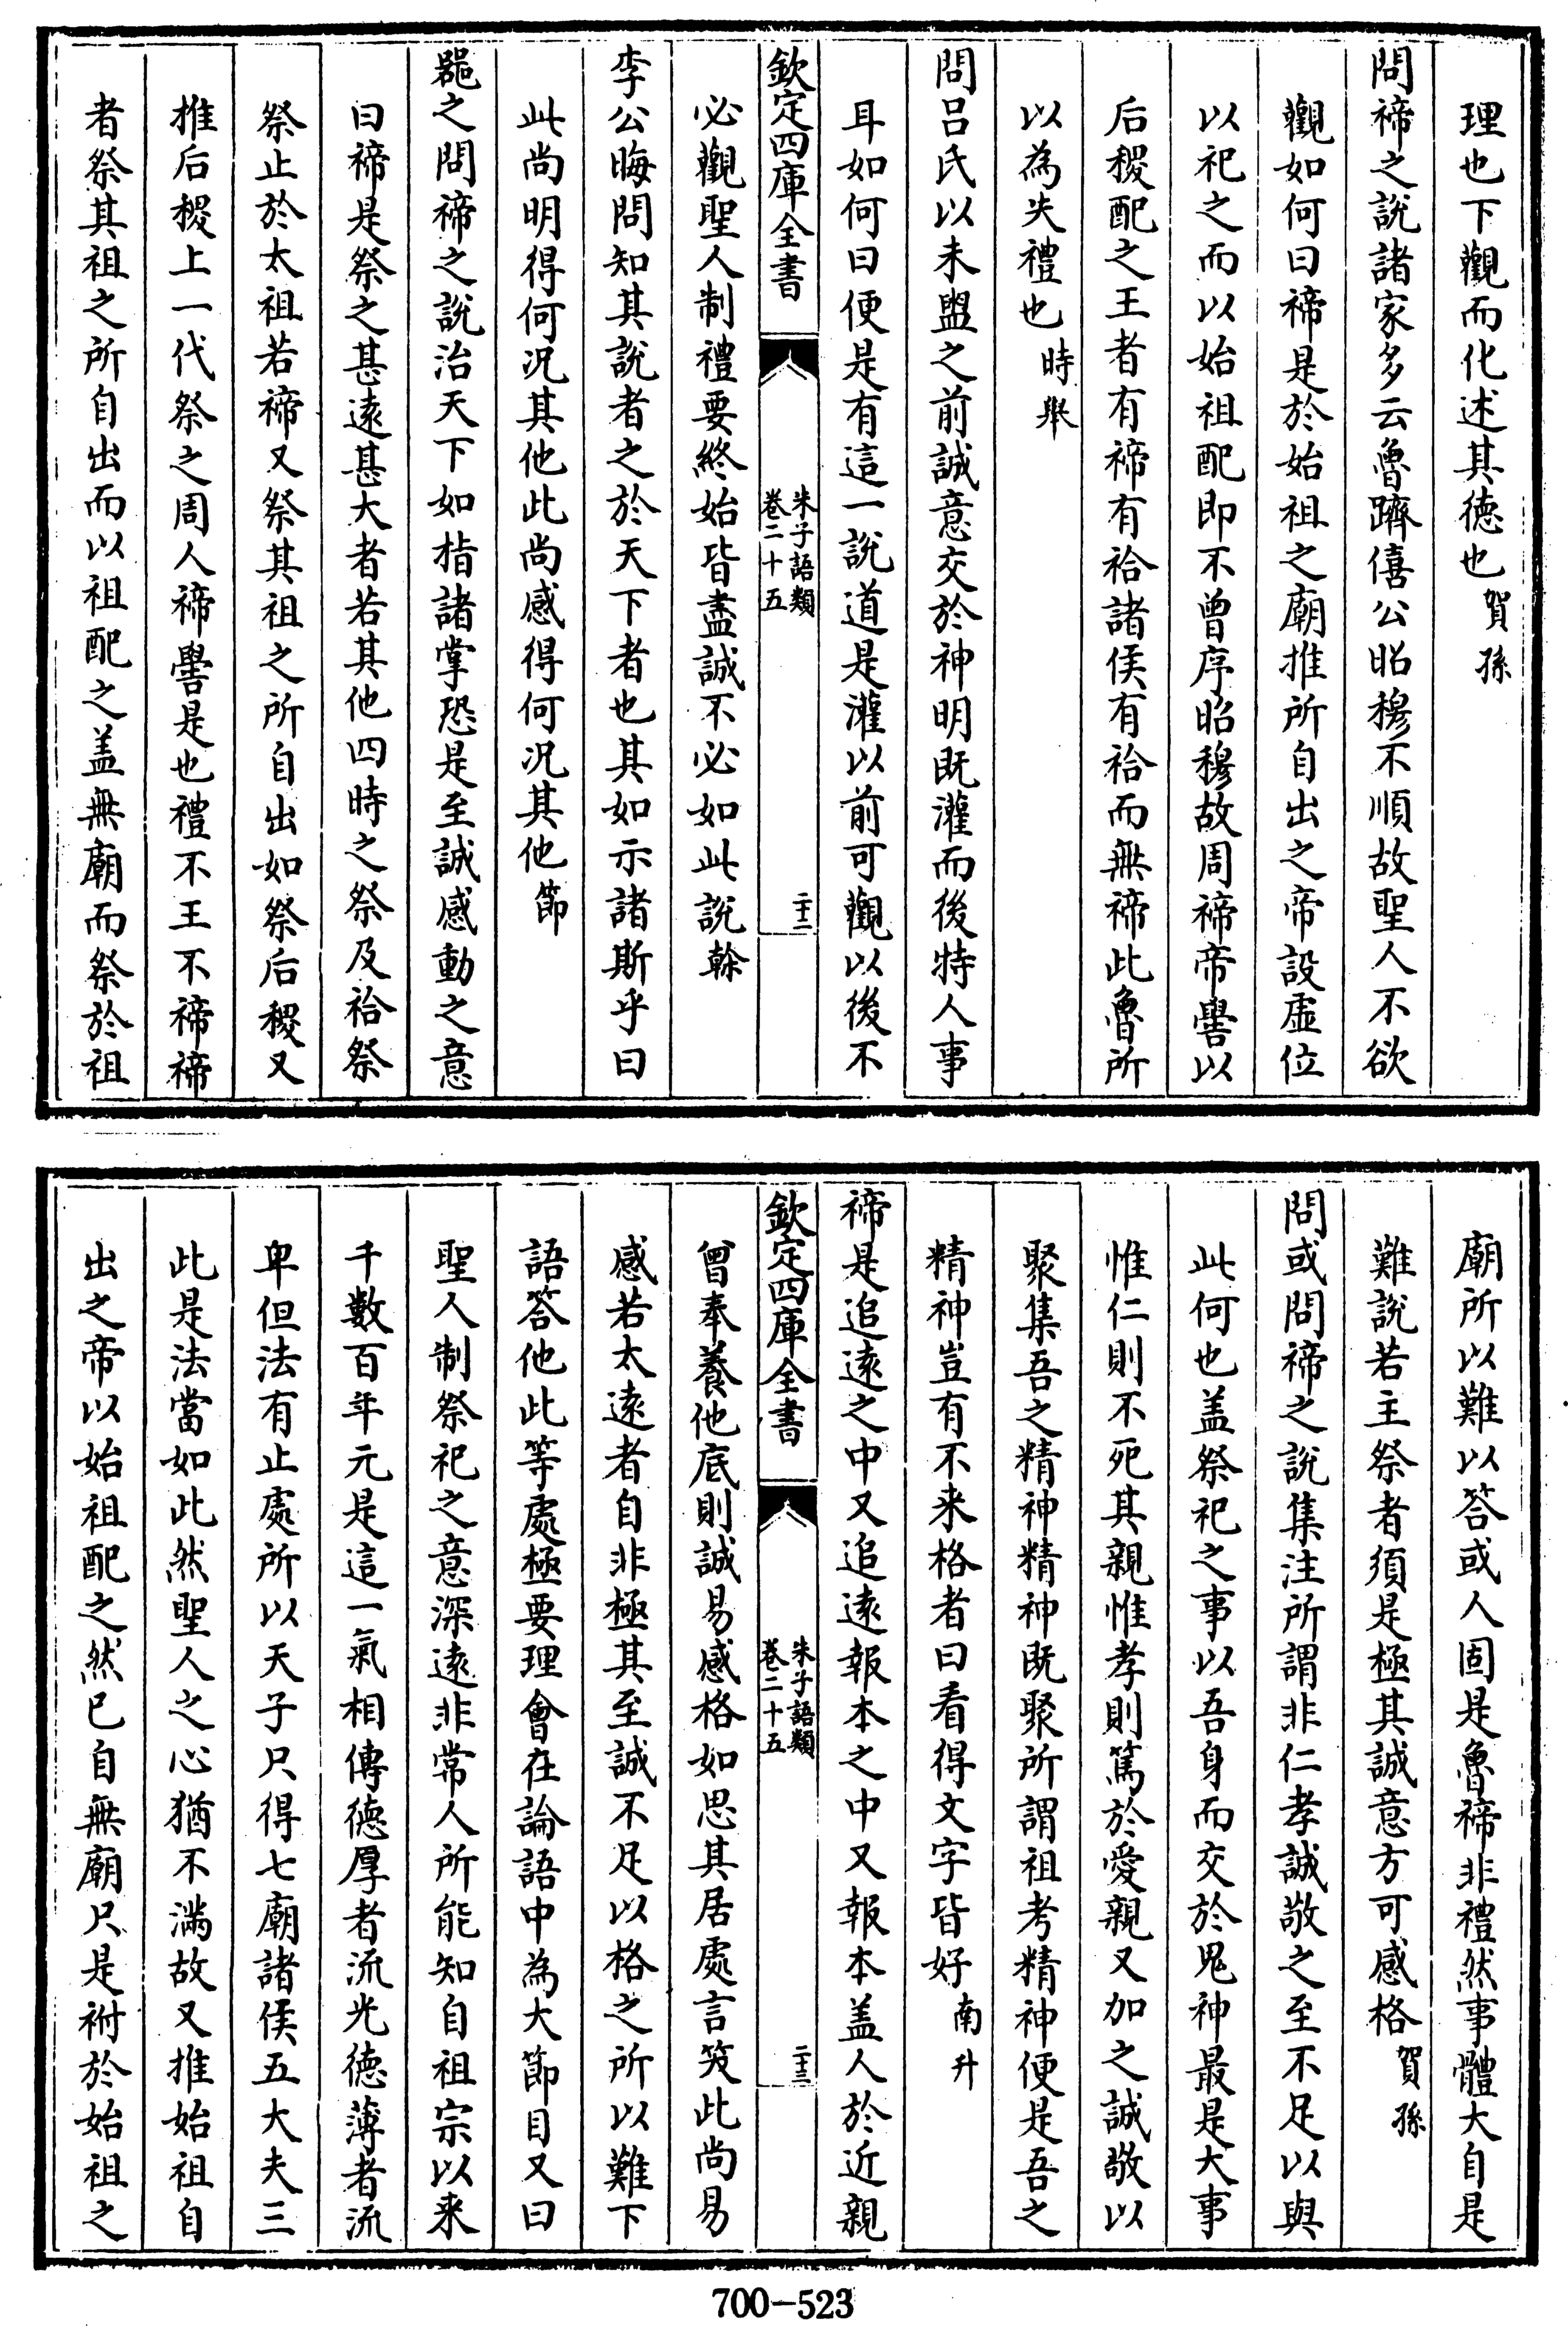 理也下觀而化述其德也賀孫
問禘之說諸家多云魯躋僖公昭穆不順故聖人不欲
觀如何曰禘是於始祖之廟推所自出之帝設虛位
以祀之而以始祖配即不曾序昭穆故周禘帝嚳以
后稷配之王者有禘有祫諸侯有祫而無禘此魯所
以為失禮也時舉
問呂氏以未盥之前誠意交於神明既灌而後特人事
耳如何曰便是有這一說道是灌以前可觀以後不
欽定四庫全書
朱子語類
卷二十五
二十二
必觀聖人制禮要終始皆盡誠不必如此說榦
李公晦問知其說者之於天下者也其如示諸斯乎曰
此尚明得何況其他此尚感得何況其他節
器之問禘之說治天下如指諸掌恐是至誠感動之意
曰禘是祭之甚遠甚大者若其他四時之祭及祫祭
祭止於太祖若禘又祭其祖之所自出如祭后稷又
推后稷上一代祭之周人禘嚳是也禮不王不禘禘
者祭其祖之所自出而以祖配之盖無廟而祭於祖
廟所以難以答或人固是魯禘非禮然事體大自是
難說若主祭者須是極其誠意方可感格賀孫
問或問禘之說集注所謂非仁孝誠敬之至不足以與
此何也盖祭祀之事以吾身而交於鬼神最是大事
惟仁則不死其親惟孝則篤於愛親又加之誠敬以
聚集吾之精神精神既聚所謂祖考精神便是吾之
精神豈有不来格者曰看得文字皆好南升
禘是追遠之中又追遠報本之中又報本盖人於近親
欽定四庫全書
朱子語類
卷二十五
二十三
曾奉養他底則誠易感格如思其居處言笑此尚易
感若太遠者自非極其至誠不足以格之所以難下
語答他此等處極要理會在論語中為大節目又曰
聖人制祭祀之意深遠非常人所能知自祖宗以来
千數百年元是這一氣相傳德厚者流光德薄者流
卑但法有止處所以天子只得七廟諸侯五大夫三
此是法當如此然聖人之心猶不滿故又推始祖自
出之帝以始祖配之然已自無廟只是祔於始祖之
700-523